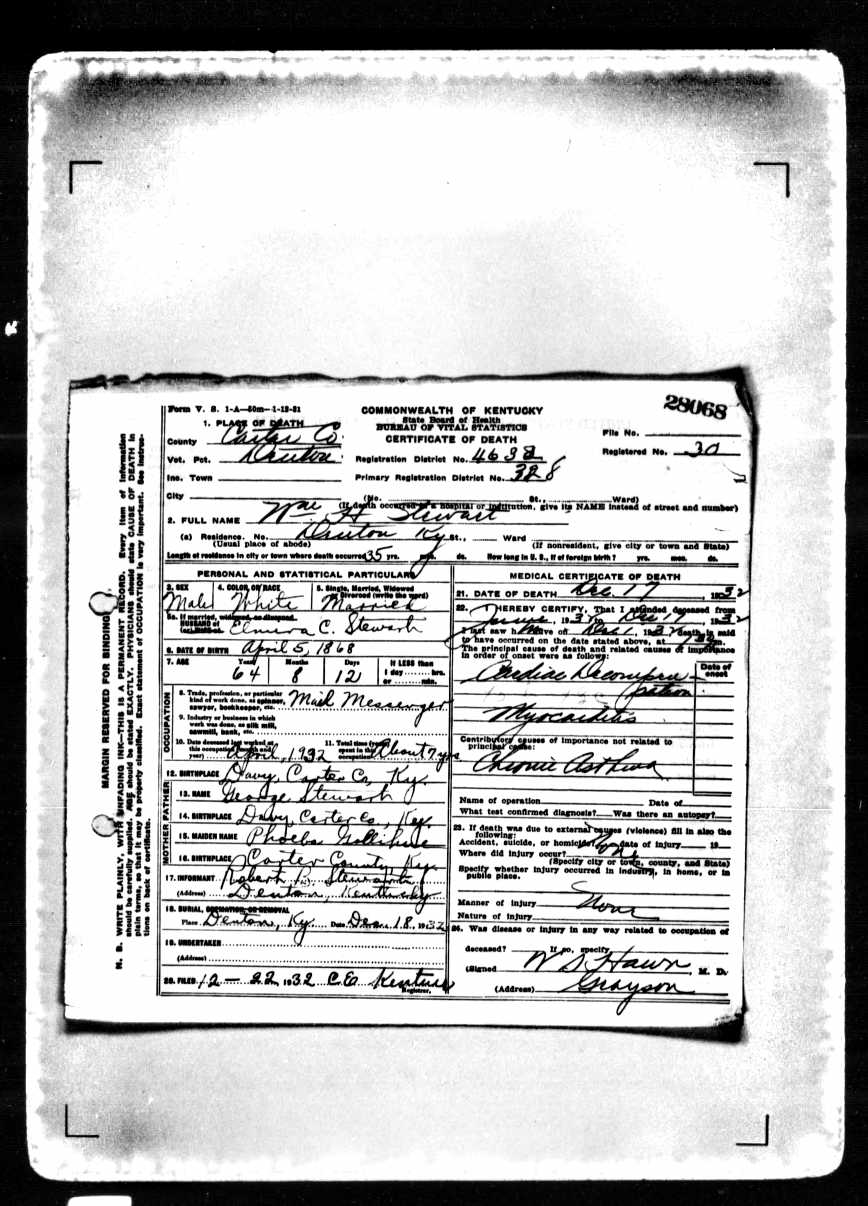 28068
Form V. S. 1-A—50m—1-12-31
COMMONWEALTH OF KENTUCKY
State Board of Health
BUREAU OF VITAL STATISTICS
CERTIFICATE OF DEATH
File No.
Registered No. 30
1. PLACE OF DEATH
County Carter Co.
Vot. Pct. Denton
Registration District No. 4638
Inc. Town
Primary Registration District No. 328
City (No. St., Ward)
(If death occurred in a hospital or institution, give its NAME instead of street and number)
2. FULL NAME Wm H Stewart
(a) Residence. No. Denton Ky St., Ward
(Usual place of abode) (If nonresident, give city or town and State)
Length of residence in city or town where death occurred 35 yrs. mos. ds. How long in U. S., if of foreign birth? yrs. mos. ds.
PERSONAL AND STATISTICAL PARTICULARS
3. SEX Male
4. COLOR OR RACE White
5. Single, Married, Widowed or Divorced (write the word) Married
5a. If married, widowed, or divorced
HUSBAND of
(or) WIFE of Elmira C. Stewart
6. DATE OF BIRTH April 5, 1868
7. AGE Years 64 Months 8 Days 12 If LESS than 1 day hrs. or min.
OCCUPATION
8. Trade, profession, or particular kind of work done, as spinner, sawyer, bookkeeper, etc. Mail Messenger
9. Industry or business in which work was done, as silk mill, sawmill, bank, etc.
10. Date deceased last worked at this occupation (month and year) April, 1932
11. Total time (years) spent in this occupation About 7 yrs
12. BIRTHPLACE Davy, Carter Co, Ky.
FATHER
13. NAME George Stewart
14. BIRTHPLACE Davy, Carter Co., Ky.
MOTHER
15. MAIDEN NAME Phoebe
16. BIRTHPLACE Carter County, Ky.
17. INFORMANT Robert B. Stewart
(Address) Denton, Kentucky
18. BURIAL, CREMATION OR REMOVAL
Place Denton, Ky. Date Dec. 18, 1932
19. UNDERTAKER
(Address)
20. FILED 12—22 1932 C. E.
Registrar.
MEDICAL CERTIFICATE OF DEATH
21. DATE OF DEATH Dec 17, 1932
22. I HEREBY CERTIFY, That I attended deceased from
to Dec 17, 1932
I last saw h alive on Dec 1, death is said
to have occurred on the date stated above, at m.
The principal cause of death and related causes of importance
in order of onset were as follows:
Date of onset
Cardiac Decompensation
Myocarditis
Contributory causes of importance not related to
principal cause:
Chronic Asthma
Name of operation Date of
What test confirmed diagnosis? Was there an autopsy?
23. If death was due to external causes (violence) fill in also the following:
Accident, suicide, or homicide? Date of injury 19
Where did injury occur?
(Specify city or town, county, and State)
Specify whether injury occurred in industry, in home, or in public place.
Manner of injury None
Nature of injury
24. Was disease or injury in any way related to occupation of
deceased? If so, specify
(Signed M. D.
(Address) Grayson
MARGIN RESERVED FOR BINDING
N. B. WRITE PLAINLY, WITH UNFADING INK—THIS IS A PERMANENT RECORD. Every item of information
should be carefully supplied. AGE should be stated EXACTLY. PHYSICIANS should state CAUSE OF DEATH in
plain terms, so that it may be properly classified. Exact statement of OCCUPATION is very important. See instruc-
tions on back of certificate.